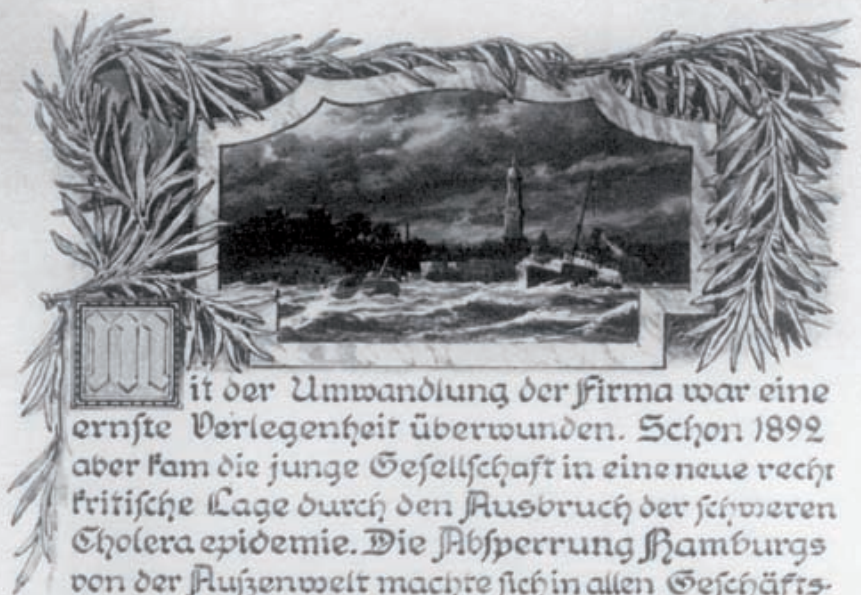 Mit der Umwandlung der Firma war eine
ernſte Verlegenheit überwunden. Schon 1892
aber kam die junge Geſellſchaft in eine neue recht
kritiſche Lage durch den Ausbruch der ſchweren
Choleraepidemie. Die Abſperrung Hamburgs
von der Außenwelt machte ſich in allen Geſchäfts-